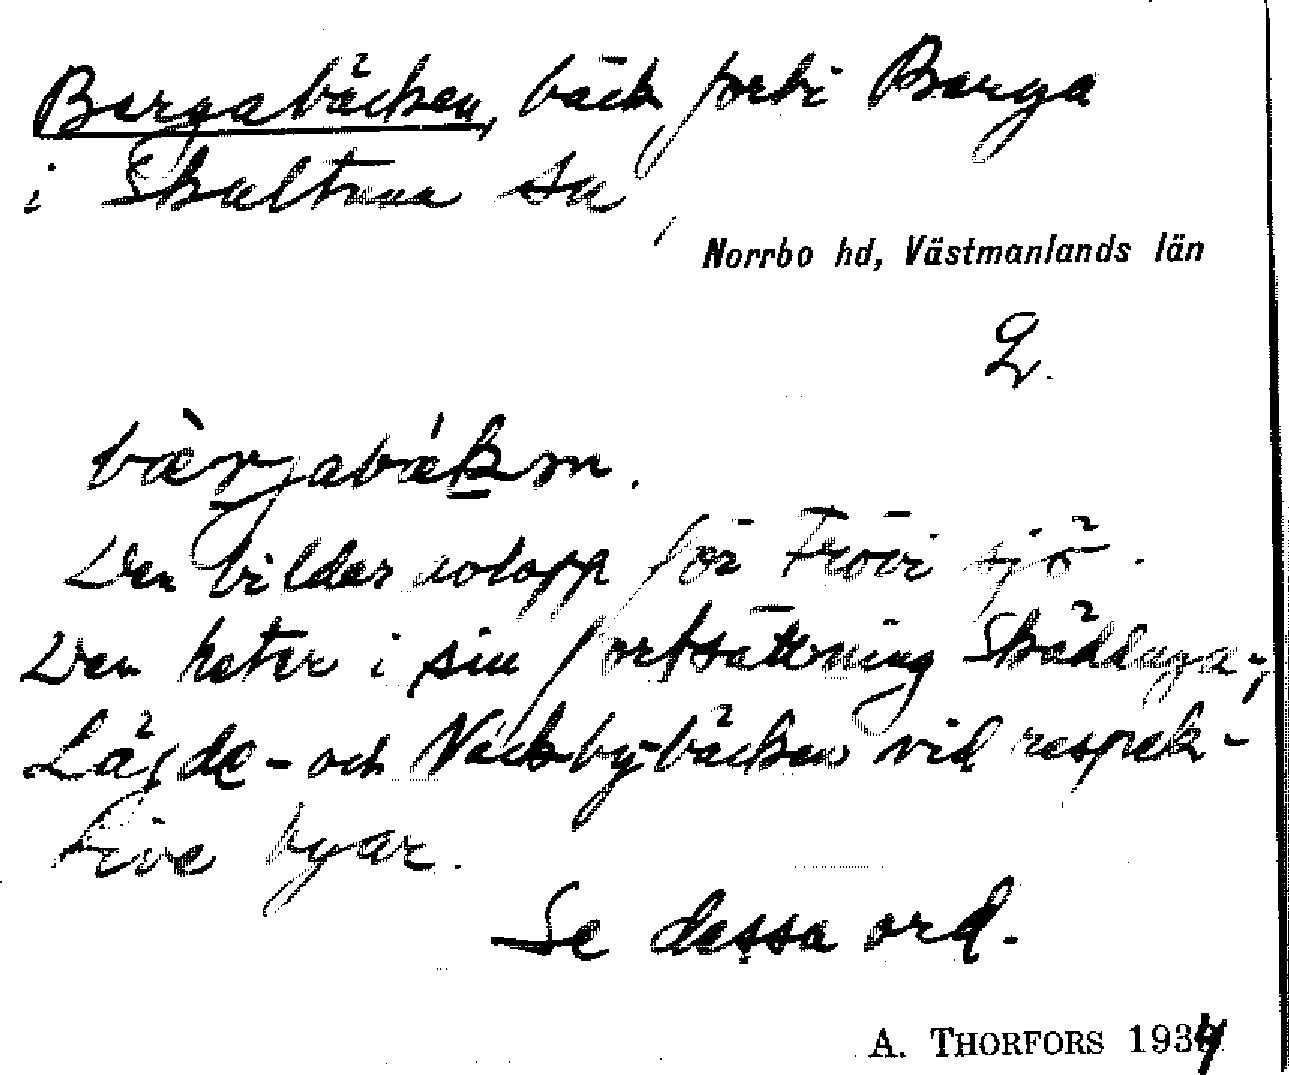 Bergabäcken, bäck förbi Berga
i Skultuna sn,
Norrbo hd, Västmanlands län
bærjabäkm.
Den bildar avlopp för Frövi sjö.
Den heter i sin fortsättning Skädduga-,
Lägde- och Väckby-bäcken vid respek-
tive byar.
Se dessa ord.
A. THORFORS 1934